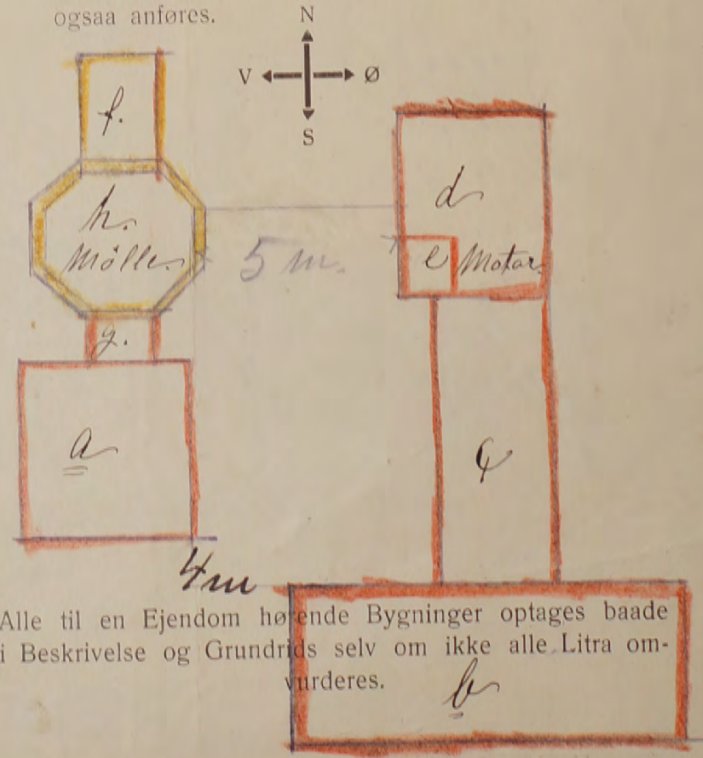 ogsaa anføres.
N
V Ø
S
f.
d
h.
Mölle.
5 m.
e Motor.
g.
a
c
4m
Alle til en Ejendom hørende Bygninger optages baade
i Beskrivelse og Grundrids selv om ikke alle Litra om-
vurderes.
b